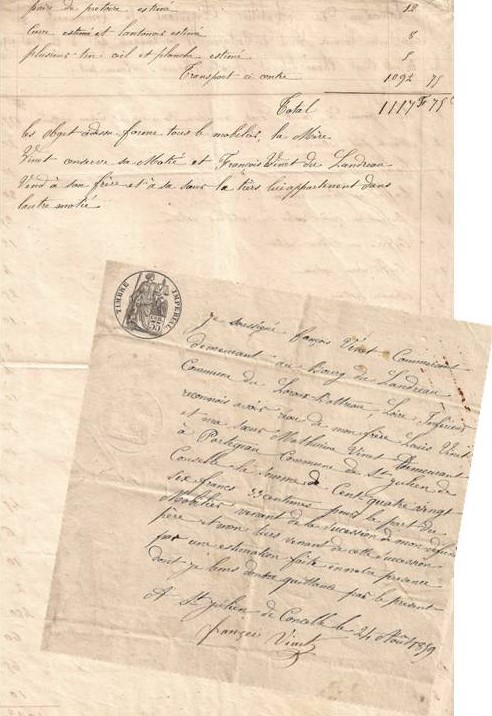 paire de pretoire estimé 12
Cuve estimé et lantonois estimé 8
plusieur tin oeil et planche estimé 5
Transport ci contre 1092 75
Total 1117 Fr 75 c
les objet adesse forme tous le mobilier, la Mère
Vinet conserve sa Motié et François Vinet du Landreau
Vend à son frère et à sa sœur le tiers lui appartenent dans
lautre motié
TIMBRE IMPERIAL
Je soussigné françois Vinet Commercent
demeurant au Bourg du Landreau
Commune du Loroux Bottreau, Loire Inférieure
reconnois avoir recu de mon frère Louis Vinet
et ma sœur Mathurine Vinet Demeurant
à Commune de St Julien de
Concelle la Somme de Cent quatre vingt
Six francs 33 centimes pour la part de
Mobilier venant de la sucession de mon défunt
père et mon lais venant de cette sucession
par une estimation faite en notre presence
dont je leurs donne quittance par le présent
A St Julien de Concelle le 24 Août 1859
françois Vinet